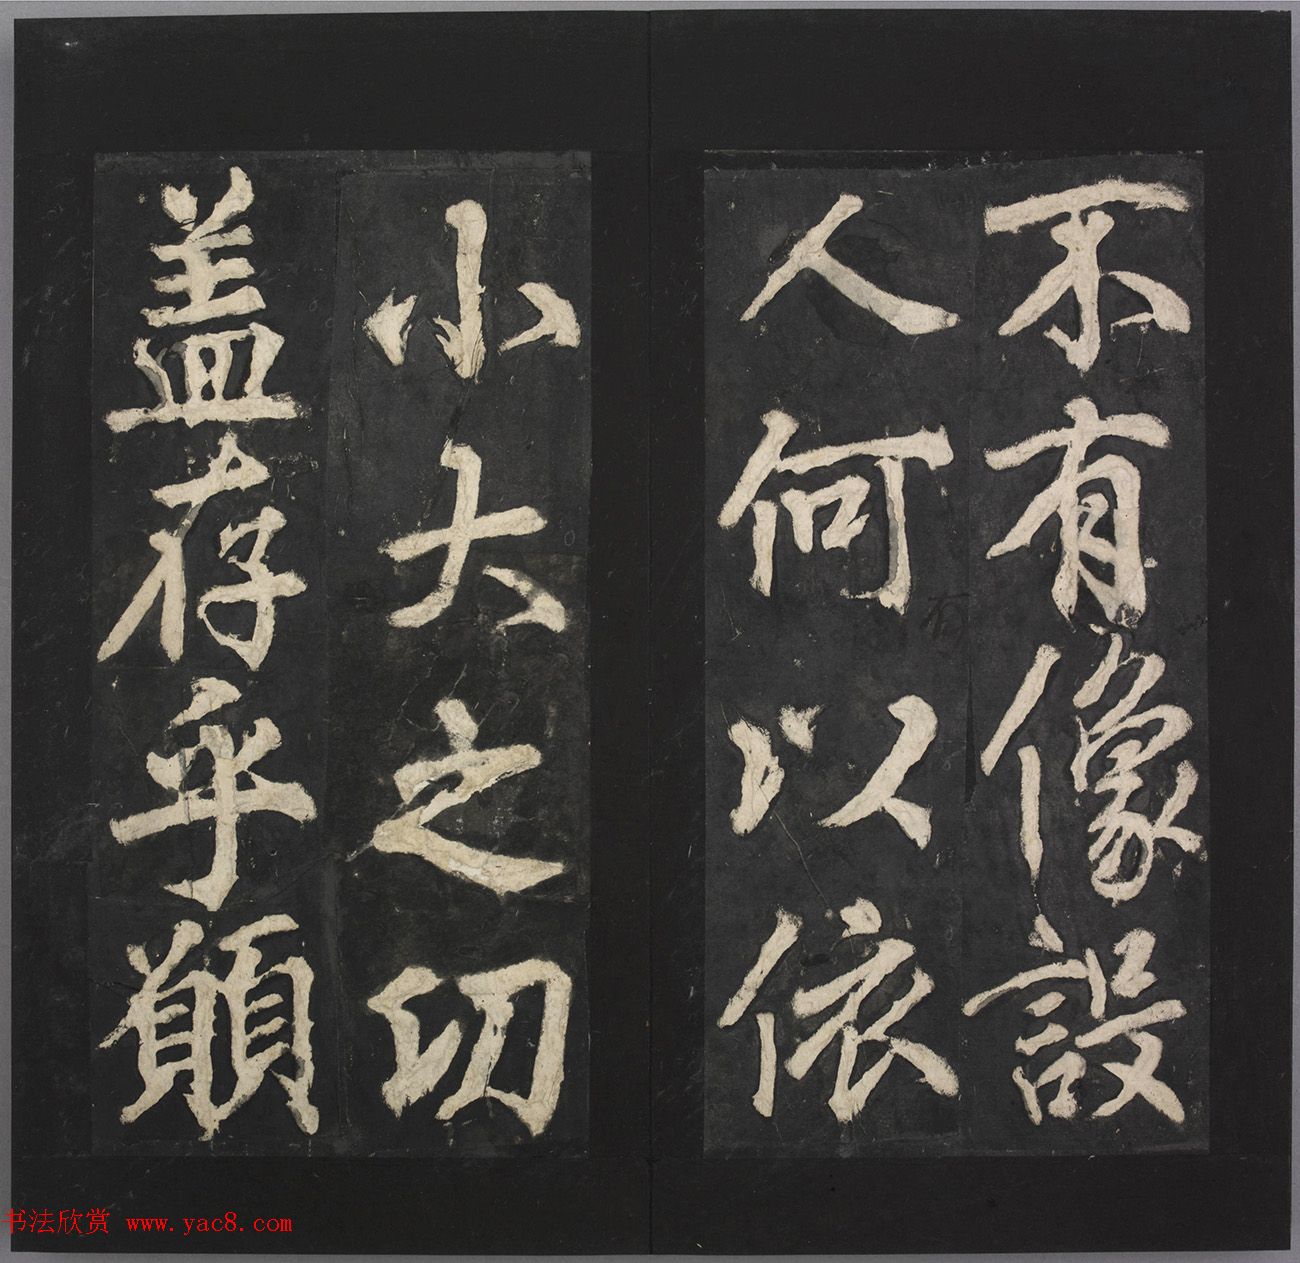 不有像設
人何以依
小大之切
盖存乎願
书法欣赏 www.yac8.com